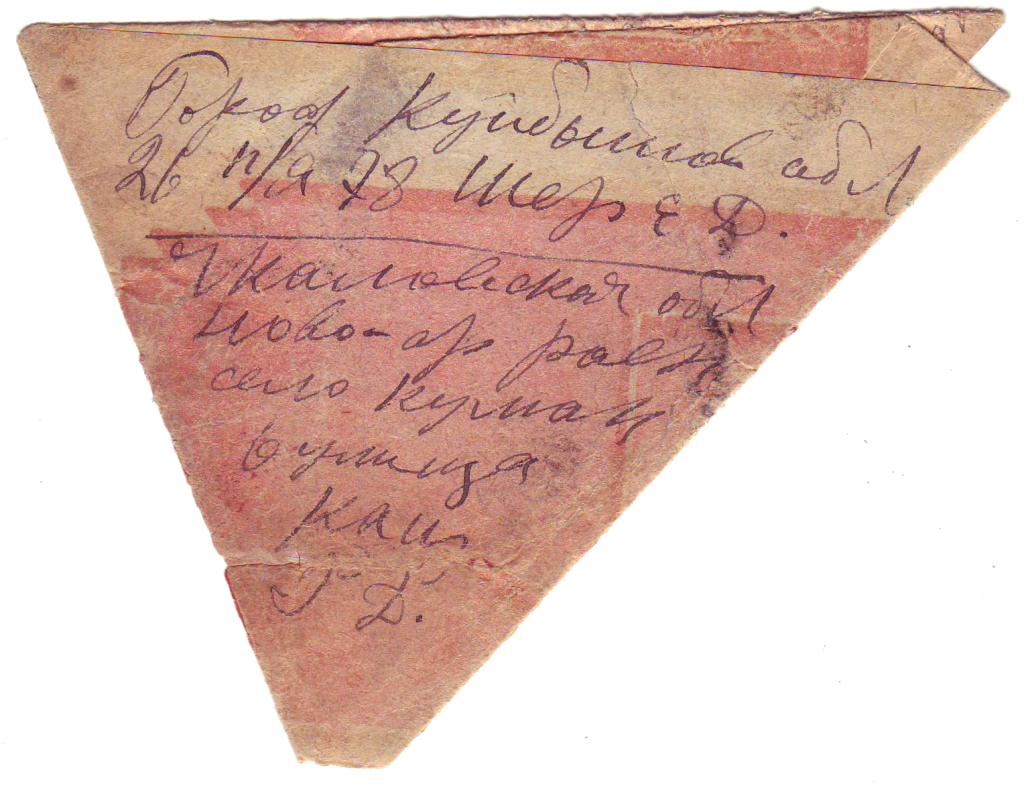 Город Куйбышев обл
26 п/я 78 Шер Е Д.
Чкаловская обл
Ново-ор раен
село Куман
Кан
Г Д.